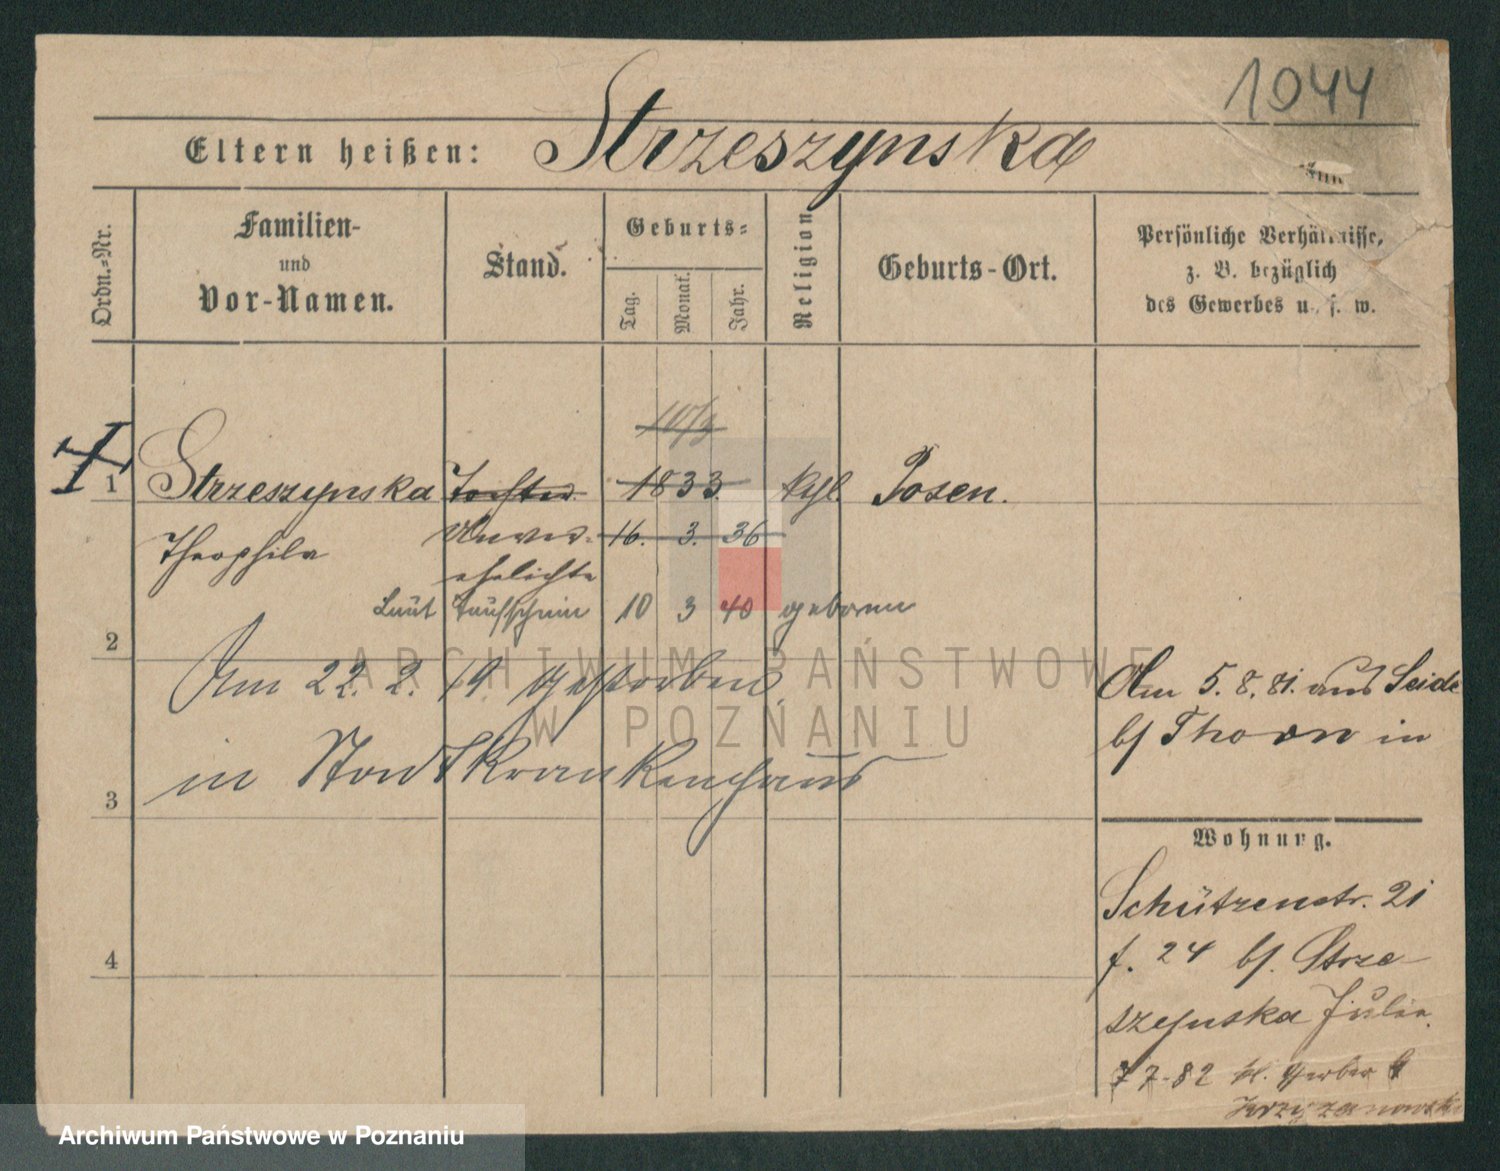 1044
Eltern heißen: Strzeszynska
Ordn.-Nr.
Familien-
und
Vor-Namen.
Stand.
Geburts-
Tag.
Monat.
Jahr.
Religion
Geburts-Ort.
Persönliche Verhältnisse,
z. B. bezüglich
des Gewerbes u. s. w.
10/3
1 Strzeszynska Tochter 1833. kath Posen.
Theophila Unver- 16. 3. 36
ehelichte
Laut Taufschein 10 3 40 geboren
2
Am 22. 2. 19 gestorben
in Stadtkrankenhaus
3
4
Am 5. 8. 81. aus Seide
b/ Thorn in
Wohnung.
Schützenstr. 21
f. 24 b/. Strze-
szynska Julia.
7 7-82 kl. Gerber 9
Krzyzanowska
ARCHIWUM PAŃSTWOWE
W POZNANIU
Archiwum Państwowe w Poznaniu